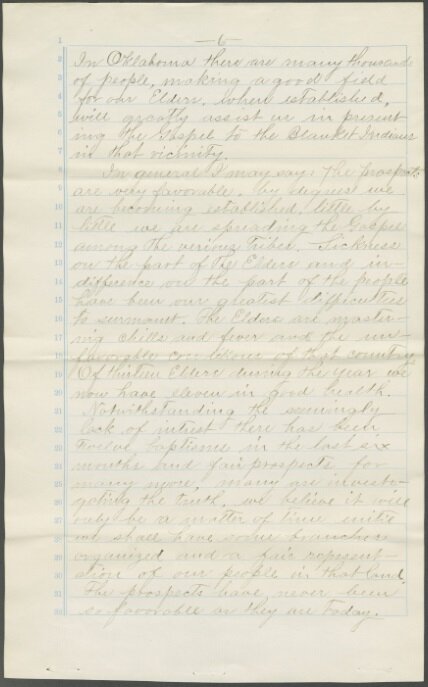 — 6 —
In Oklahoma there are many thousands
of people, making a good field
for our Elders, when established,
will greatly assist us in present-
ing the Gospel to the Blanket Indians
in that vicinity.
In general I may say: The prospects
are very favorable. by degrees we
are becoming established, little by
little we are spreading the Gospel
among the various Tribes. Sickness
on the part of The Elders and in-
difference on the part of the people
have been our greatest difficulties
to surmount. The Elders are master-
ing chills and fever and the un-
favorable conditions of that country
Of thirteen Elders during the year we
now have eleven in good health.
Notwithstanding the seemingly
lack of intrest there has been
Twelve baptisms in the last six
months and fair prospects for
many more. many are investi-
gating the truth. we believe it will
only be a matter of time until
we shall have some branches
organized and a fair represent-
ation of our people in that land.
The prospects have never been
so favorable as they are Today.
1
2
3
4
5
6
7
8
9
10
11
12
13
14
15
16
17
18
19
20
21
22
23
24
25
26
27
28
29
30
31
32